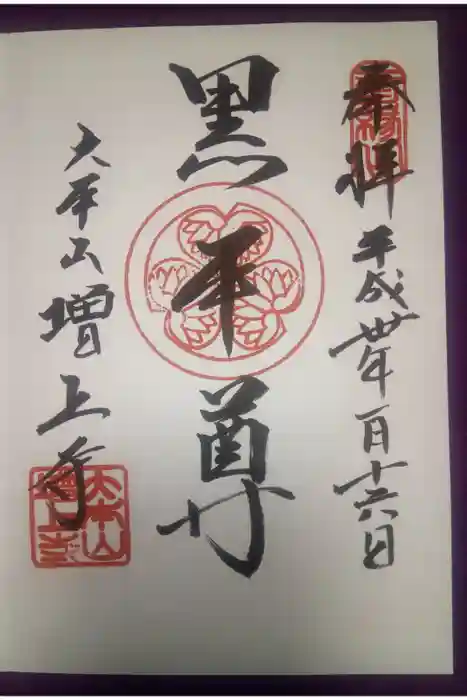 奉拝 平成卅年一月十六日
黒本尊
大本山増上寺
大本山
増上寺